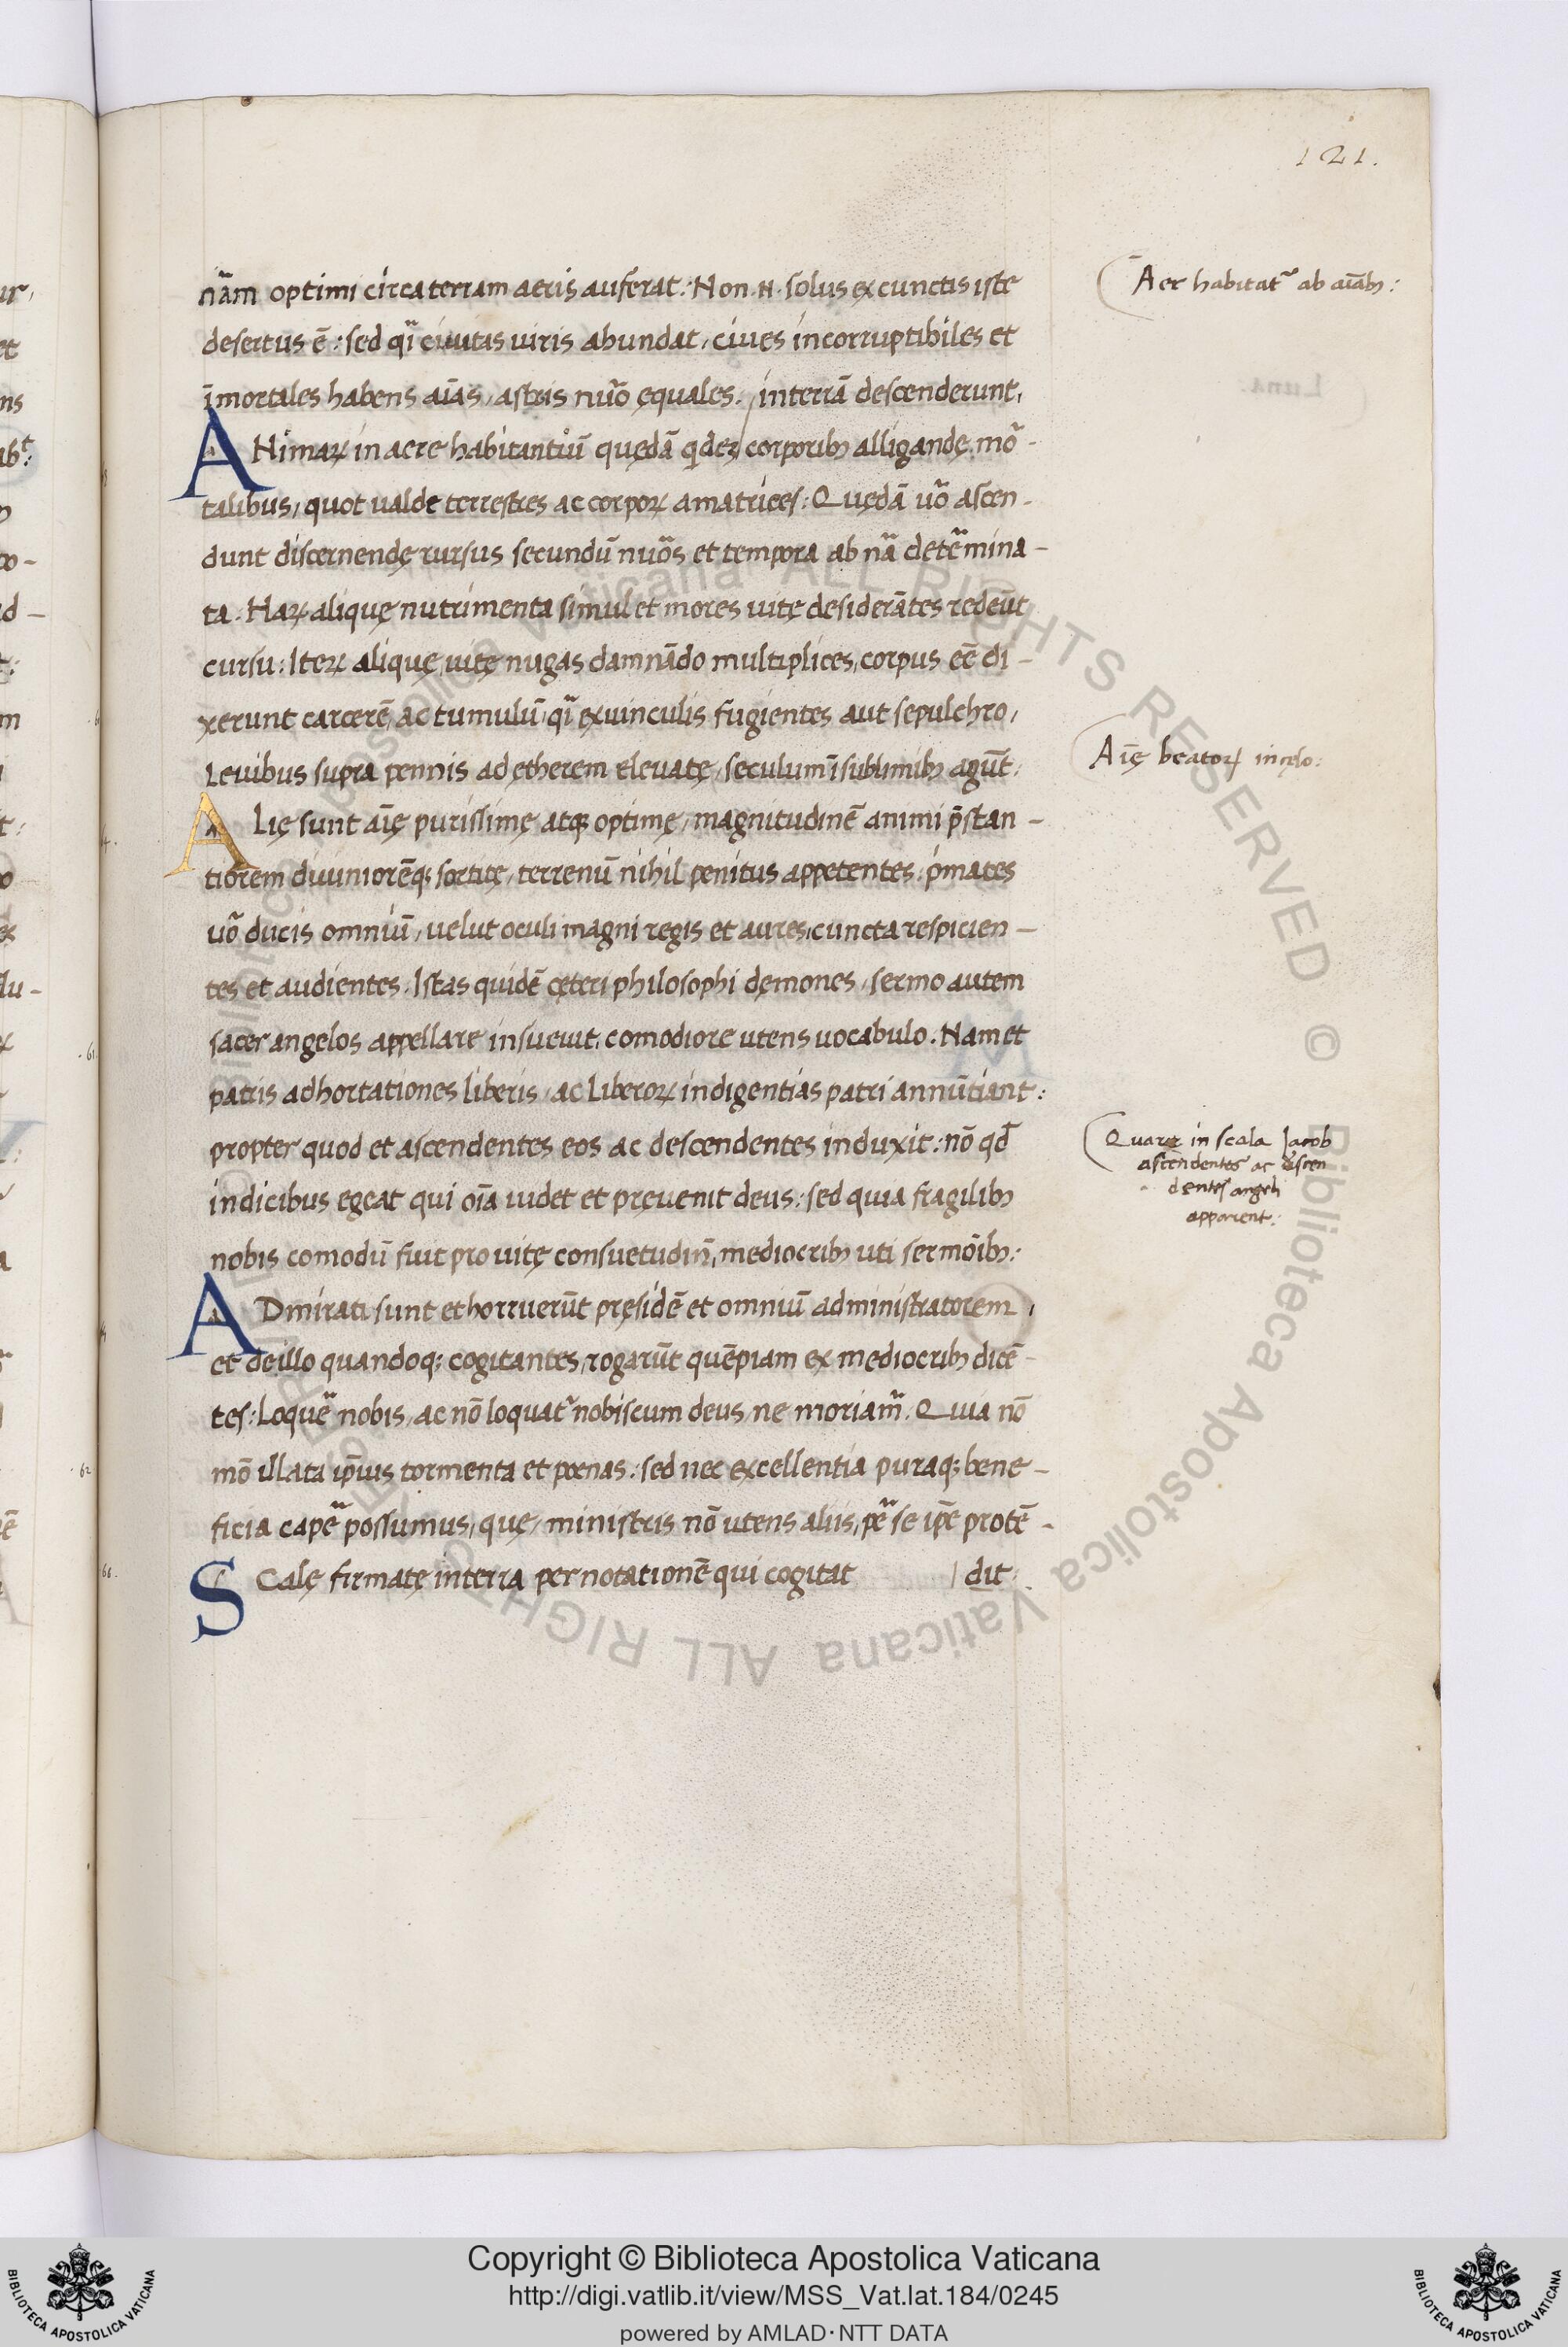 121.
nãm optimi circa terram aeris auferat: Non .N. solus ex cunctis iste
desertus ē: sed qi civitas viris abundat, cives incorruptibiles et
īmortales habens aīas, astris nuo equales. / in terrā descenderunt,
ANimaꝝ in aere habitantiū quedā qdez / corporibꝫ alligandę mo-
talibus, quot valde terrestres ac corpoꝝ amatrices: Quędā uo ascen-
dunt discernendę rursus secundū nuos et tempora ab na detemina-
ta. Haꝝ aliquę nutrimenta simul et mores vitę desiderātes redeūt
cursu: Iteꝝ aliquę vitę nugas damnādo multiplices, corpus eē di-
xerunt carcerē, ac tumulū, qi ex vinculis fugientes aut sepulchro,
Levibus supra pennis ad ętherem elevatę, seculum ī sublimibꝫ agūt:
ALię sunt aīę purissimę atqꝫ optimę, magnitudinē animi p̄stan-
tiorem diviniorēqꝫ sortitę, terrenū nihil penitus appetentes: pmates
uo ducis omniū, velut oculi magni regis et aures, cuncta respicien-
tes et audientes. Istas quidē cęteri philosophi dęmones, sermo autem
sacer angelos appellare insuevit, comodiore utens vocabulo. Nam et
patris adhortationes liberis, ac Liberoꝝ indigentias patri annūtiant:
propter quod et ascendentes eos ac descendentes induxit: nō qđ
indicibus egeat qui oīa videt et pręvenit deus: sed quia fragilibꝫ
nobis comodū fuit pro vitę consuetudin̄, mediocribꝫ uti sermōibꝫ:
ADmirati sunt et horruerūt pręsidē et omniū administratorem,
et de illo quandoqꝫ cogitantes, rogarūt quēpiam ex mediocribꝫ dicē-
tes: Loque nobis, ac nō loquat nobiscum deus, ne moriam. Quia nō
mō illata ip̄ius tormenta et pœnas: sed nec excellentia puraqꝫ bene-
ficia cape possumus, quę, ministris nō utens aliis, pe se ip̄e protē-
SCalę firmatę in terra per notationē qui cogitat / dit:
Aer habitat ab aīabꝫ:
Aīę beatoꝝ in cęlo:
Quare in scala Jacob
ascendentes ac descen
dentes angeli
apparent:
Copyright © Biblioteca Apostolica Vaticana
http://digi.vatlib.it/view/MSS_Vat.lat.184/0245
powered by AMLAD·NTT DATA